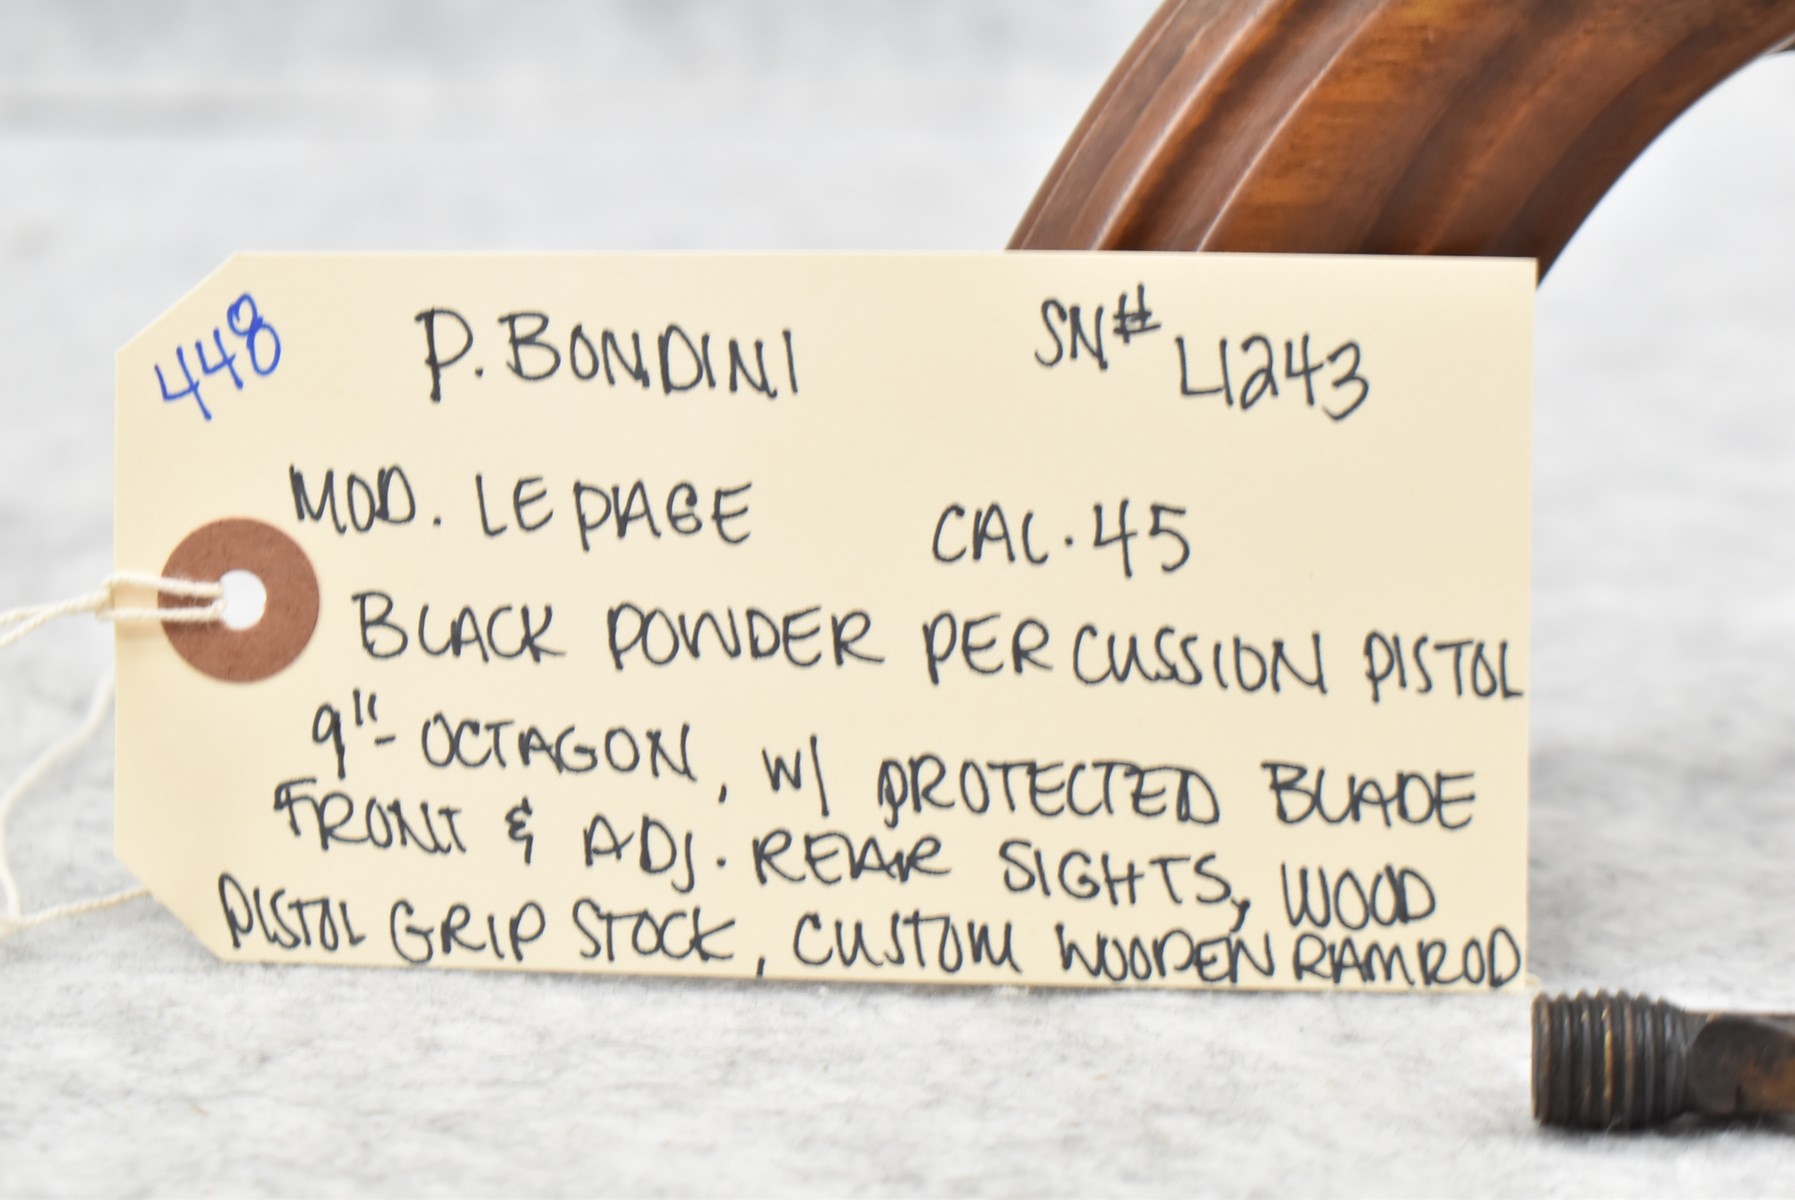 448
P. BONDINI SN# L1243
MOD. LE PAGE CAL .45
BLACK POWDER PERCUSSION PISTOL
9"- OCTAGON, W/ PROTECTED BLADE
FRONT & ADJ. REAR SIGHTS, WOOD
PISTOL GRIP STOCK, CUSTOM WOODEN RAMROD